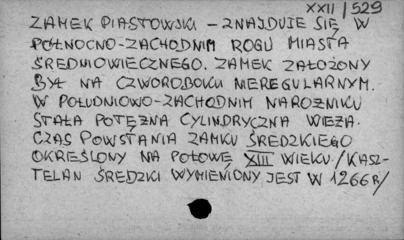 XXII/529
ZAMEK PIASTOWSKI – ZNAJDUJE SIĘ W
PÓŁNOCNO-ZACHODNIM ROGU MIASTA
ŚREDNIOWIECZNEGO. ZAMEK ZAŁOŻONY
BYŁ NA CZWOROBOKU NIEREGULARNYM.
W POŁUDNIOWO-ZACHODNIM NAROŻNIKU
STAŁA POTĘŻNA CYLINDRYCZNA WIEŻA.
CZAS POWSTANIA ZAMKU ŚREDZKIEGO
OKREŚLONY NA POŁOWĘ XIII WIEKU./KASZ-
TELAN ŚREDZKI WYMIENIONY JEST W 1266R/